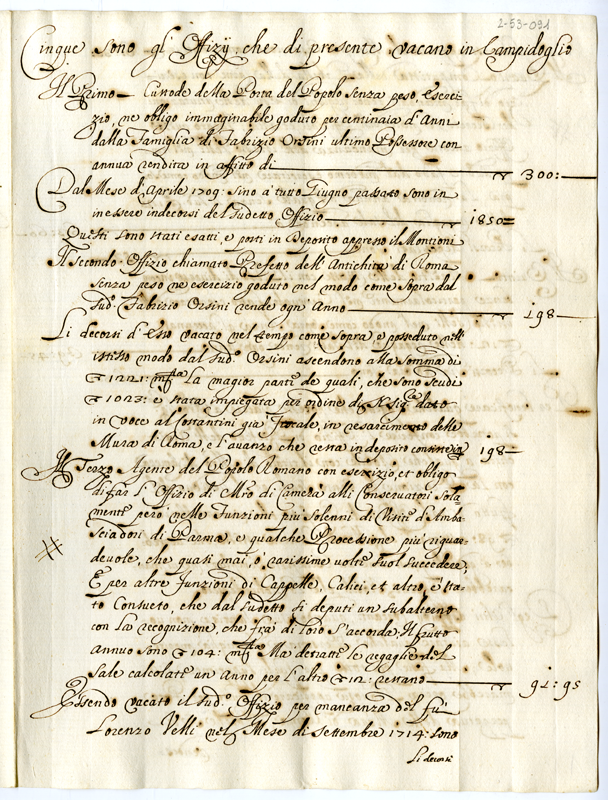 2-53-091
Cinque sono gl'Offizÿ che di presente vacano in Campidoglio
Il Primo Custode della Porta del Popolo senza peso, Eserci-
zio, ne obligo immaginabile goduto per centinaia d'Anni
dalla Famiglia di Fabrizio Orsini ultimo Possessore con
annua rendita in affitto di 300:
Dal Mese d'Aprile 1709: sino a tutto Giugno passato sono in
in essere indecorsi del sudetto Offizio 1850
Questi sono stati esatti, e posti in Deposito appresso il Montioni
Il secondo Offizio chiamato Prefetto dell'Antichità di Roma
senza peso ne esercizio goduto nel modo come sopra dal
sud.o Fabrizio Orsini rende ogn'Anno 198
Li decorsi d'esso vacato nel tempo come sopra e posseduto nell'
istesso modo dal sud.o Orsini ascendono alla somma di
1221: mta La magior parte de quali, che sono scudi
1023: è stata impiegata per ordine di N. Sig.re dato
in voce al Costantini già Fiscale, in resarcimento delle
Mura di Roma, e l'avanzo che resta in deposito consiste in 198
Il Terzo Agente del Popolo Romano con esercizio, et obligo
di far l'Offizio di Mro di Camera alli Conservatori sola-
mente però nelle Funzioni più solenni di Visite d'Amba-
sciadori di Parma, e qualche Processione più riguar-
devole, che quasi mai, ò rarissime volte suol succedere,
E per altre Funzioni di Cappelle, Calici, et altro è sta-
to Consueto, che dal sudetto si deputi un subalterno
con la recognizione, che frà di loro s'accorda: Il frutto
annuo sono 104: mta Ma detratte le regaglie del
sale calcolate un Anno per l'altro 12: restano 91: 95
Essendo vacato il sud.o Offizio per mancanza del fù
Lorenzo Velli nel Mese di Settembre 1714: sono
Li decorsi